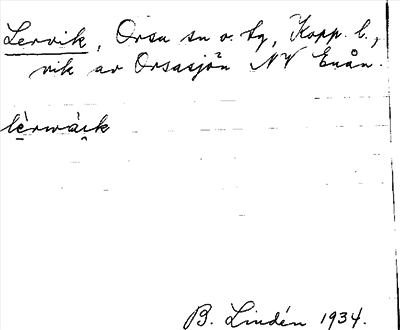 Lervik, Orsa sn o. tg, Kopp. l.,
vik av Orsasjön NV Enån.
lèrwàik
B. Lindén 1934.